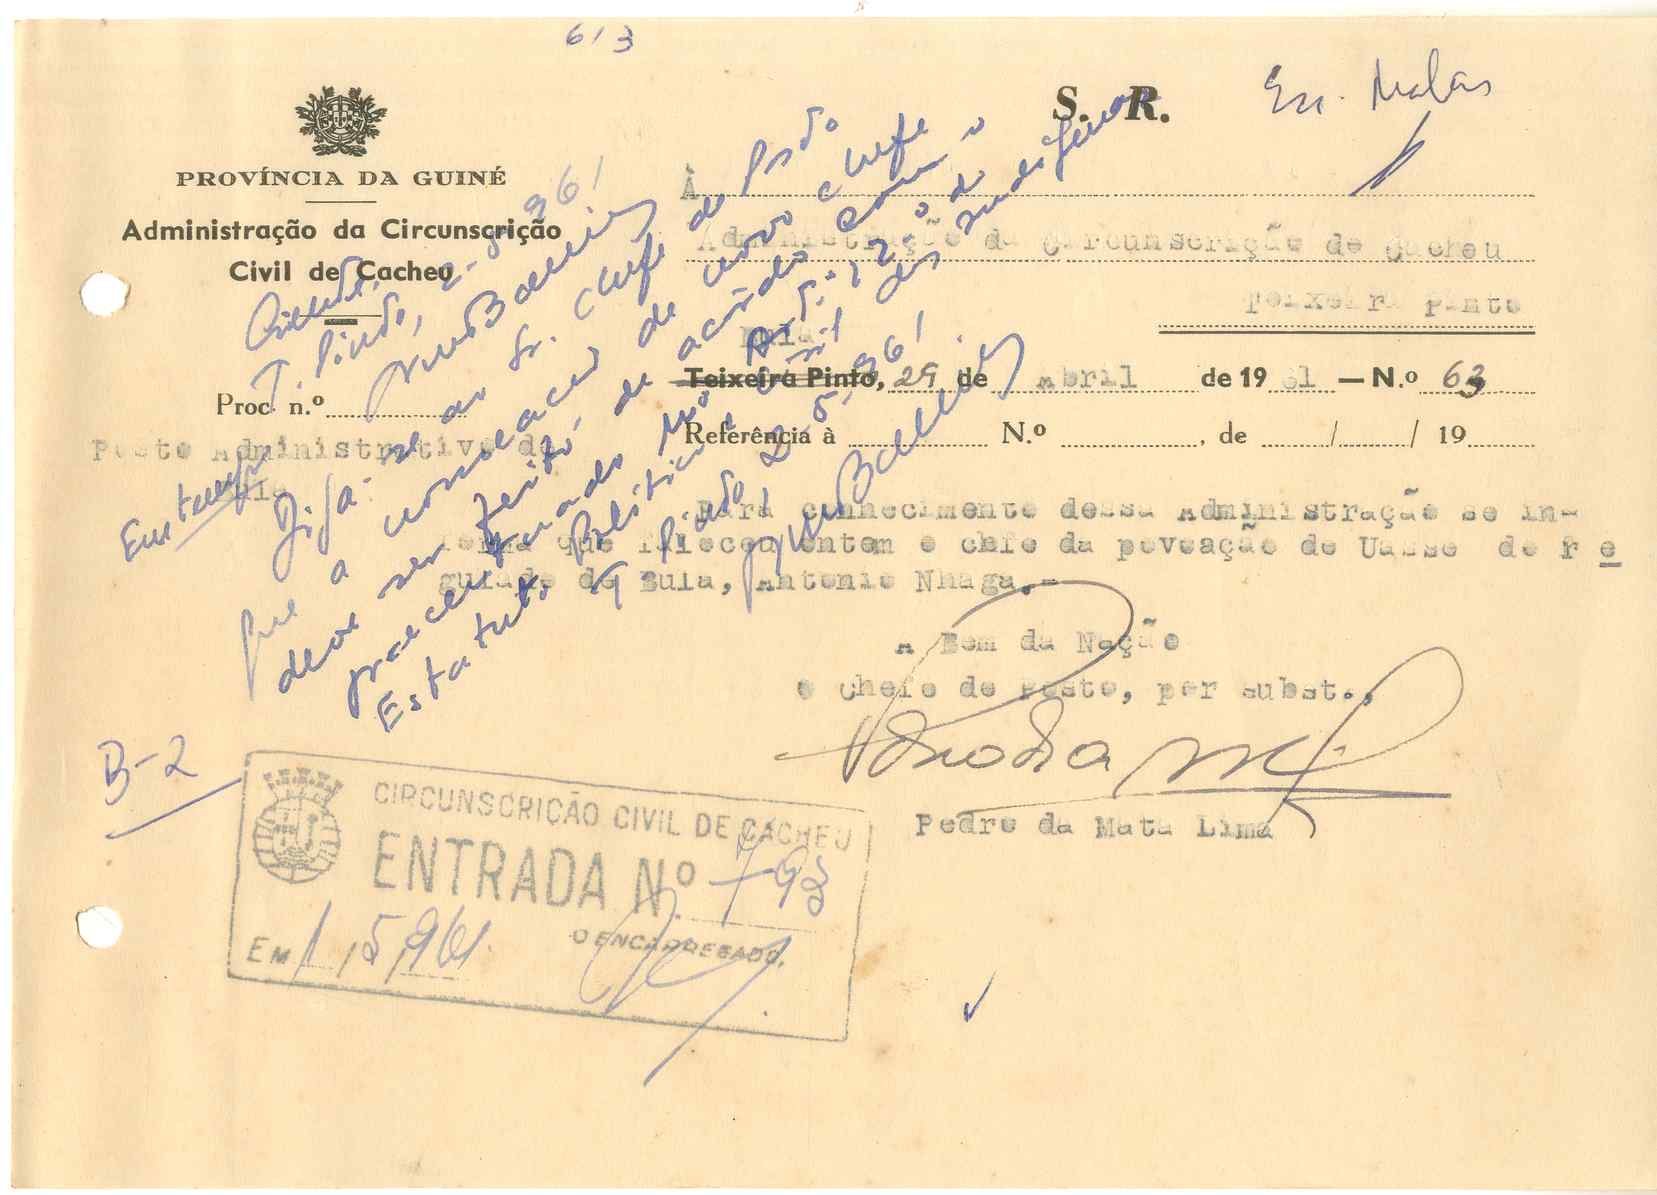 613
S. R.
PROVÍNCIA DA GUINÉ
Administração da Circunscrição
Civil de Cacheu
À
Administração da Circunscrição de Cacheu
Teixeira Pinto
Bula
Teixeira Pinto, 29 de Abril de 1961 — N.º 63
Proc. n.º
Referência à N.º , de / / 19
Posto Administrativo de
Bula
Para conhecimento dessa Administração se in-
forma que faleceu ontem o chefe da povoação de Uasse do re
gulado de Bula, Antonio Nhaga.-
A Bem da Nação
o Chefe de Posto, por subst.,
Pedro da Mata Lima
T. Pinto, 2-5-961
Diga-se ao Sr. Chefe do Posto
que a nomeação de novo chefe
deve ser feita de acôrdo com o
preceituado no Artº. 12º do
Estatuto Político e Civil dos Indígenas
T. Pinto 2-5-961
B-2
CIRCUNSCRIÇÃO CIVIL DE CACHEU
ENTRADA Nº 793
EM 1/5/961
O ENCARREGADO,